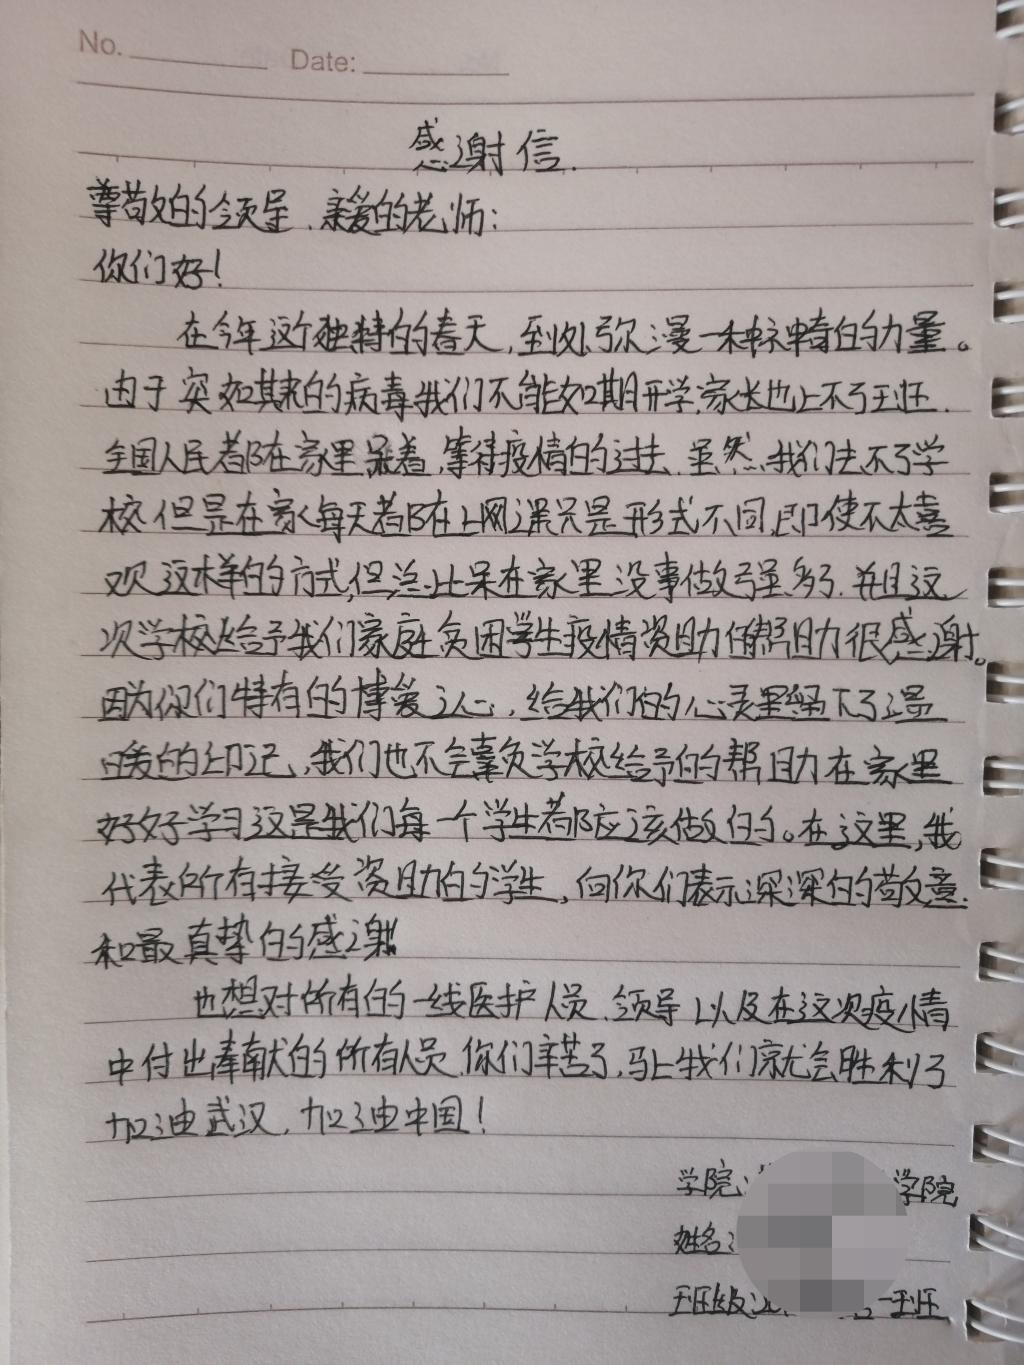 No. Date:
感谢信.
尊敬的领导、亲爱的老师:
你们好!
在今年这个独特的春天,到处弥漫一种神奇的力量。
由于突如其来的病毒我们不能如期开学,家长也上不了班.
全国人民都在家里呆着,等待疫情的过去.虽然,我们去不了学
校但是在家每天都在上网课只是形式不同,即使不太喜
欢这样的方式,但总比呆在家里没事做强多了.并且这
次学校给予我们家庭贫困学生疫情资助 帮助很感谢。
因为你们特有的博爱之心,给我们的心灵里留下了温
暖的印记,我们也不会辜负学校给予的帮助在家里
好好学习这是我们每一个学生都应该做的。在这里,我
代表所有接受资助的学生,向你们表示深深的敬意.
和最真挚的感谢!
也想对所有的一线医护人员、领导以及在这次疫情
中付出奉献的所有人员.你们辛苦了,马上我们就会胜利了
加油武汉,加油中国!
学院: 学院
姓名:
班级: 班